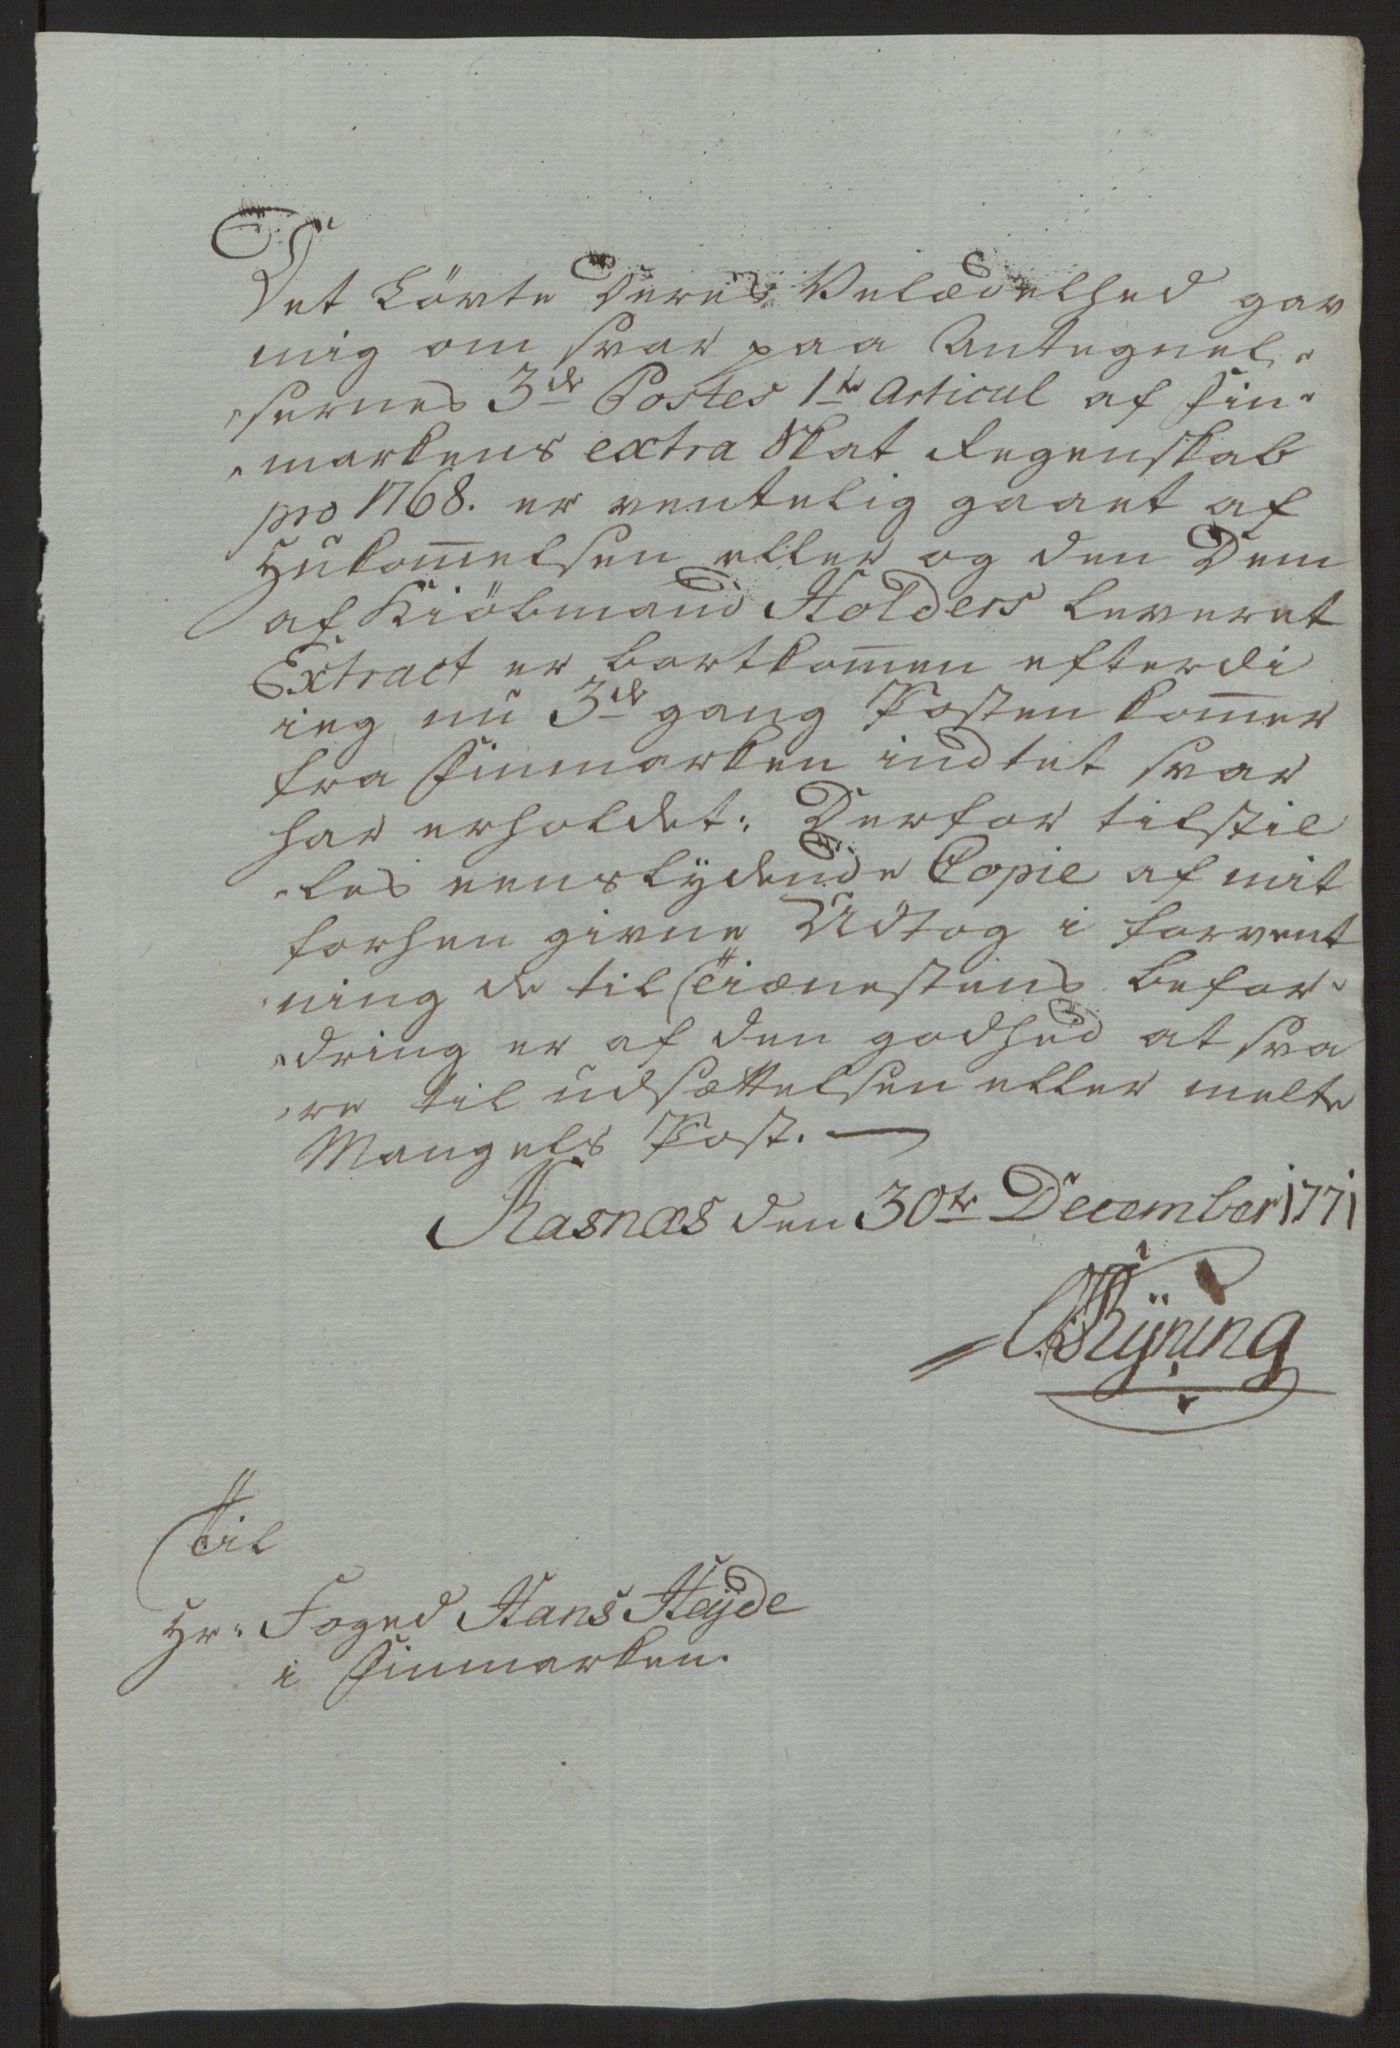 Det Lövte Deres Velædelhed gav
mig om svar paa Antegnel,,
,,sernes 3de Postes 1te Articul af Fin,,
,,markens extra Skat Regenskab
pro 1768. er ventelig gaaet af
Hukom̄elsen eller og den Dem
af Kiöbmand Holders leveret
Extract er bortkom̄en efterdi
ieg nu 3de gang Posten kom̄er
fra Finmarken indtet svar
har erholdet: Derfor tilstil
,,les eenslÿdende Copie af mit
forhen givne Udtog i forvent
,,ning De til Tiænestens befor,,
,,dring er af den godhed at sva
,,re til udsættelsen eller melte
Mangels Post. —
Rasnæs den 30te December 1771
Rÿning
Til
Hr. Foged Hans Heÿde
i Finmarken.